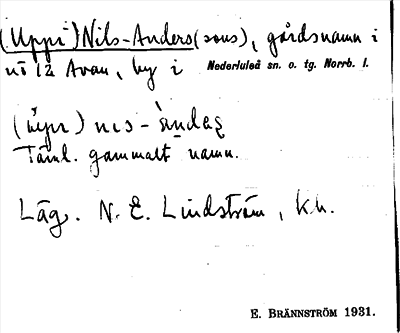 (Uppi) Nils-Anders(sons), gårdsnamn i
nr 12 Avan, by i Nederluleå sn. o. tg. Norrb. l.
Täml. gammalt namn.
Läg. N. E. Lindström, kh.
E. BRÄNNSTRÖM 1931.